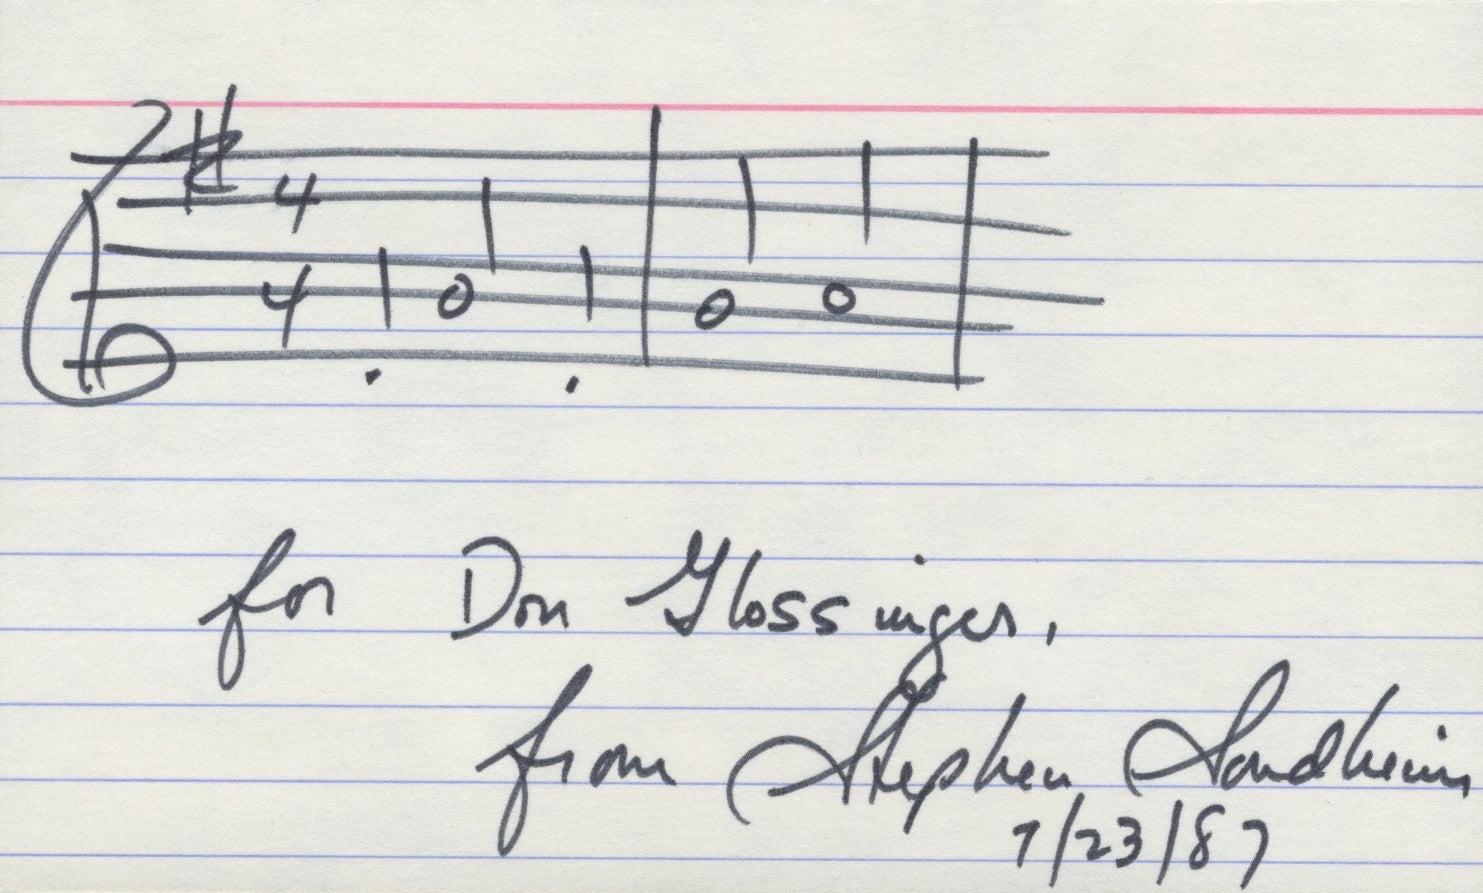 4
4
for Don Glossinger,
from Stephen Sondheim
7/23/87